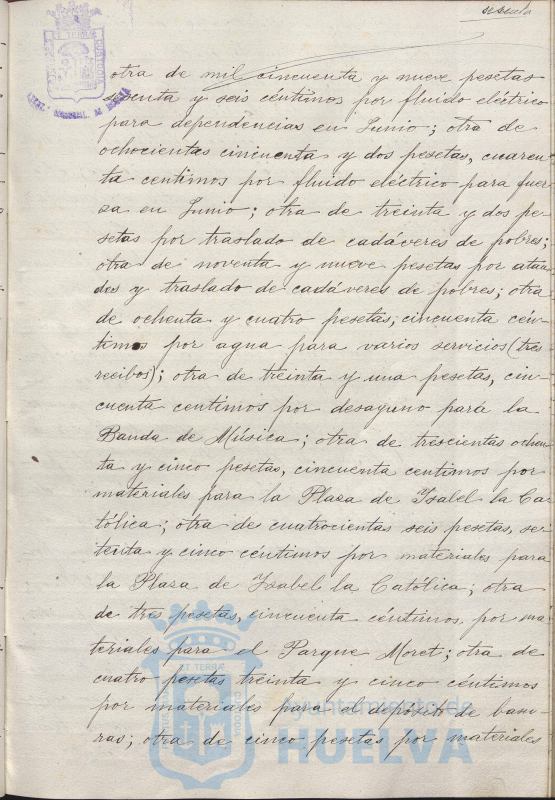 sesenta
otra de mil cincuenta y nueve pesetas
sesenta y seis céntimos por fluido eléctrico
para dependencias en Junio; otra de
ochocientas cincuenta y dos pesetas, cuaren
ta centimos por fluido eléctrico para fuer
za en Junio; otra de treinta y dos pe
setas por traslado de cadáveres de pobres;
otra de noventa y nueve pesetas por ataú
des y traslado de cadáveres de pobres; otra
de ochenta y cuatro pesetas, cincuenta cén
timos por agua para varios servicios (tres
recibos); otra de treinta y una pesetas, cin
cuenta centimos por desayuno para la
Banda de Música; otra de trescientas ochen
ta y cinco pesetas, cincuenta centimos por
materiales para la Plaza de Ysabel la Ca
tólica; otra de cuatrocientas seis pesetas, se
tenta y cinco céntimos por materiales para
la Plaza de Ysabel la Católica; otra
de tres pesetas, cincuenta céntimos, por ma
teriales para el Parque Moret; otra de
cuatro pesetas treinta y cinco céntimos
por materiales para el depósito de basu
ras; otra de cinco pesetas por materiales
ET TERRA
ayuntamiento de
HUELVA